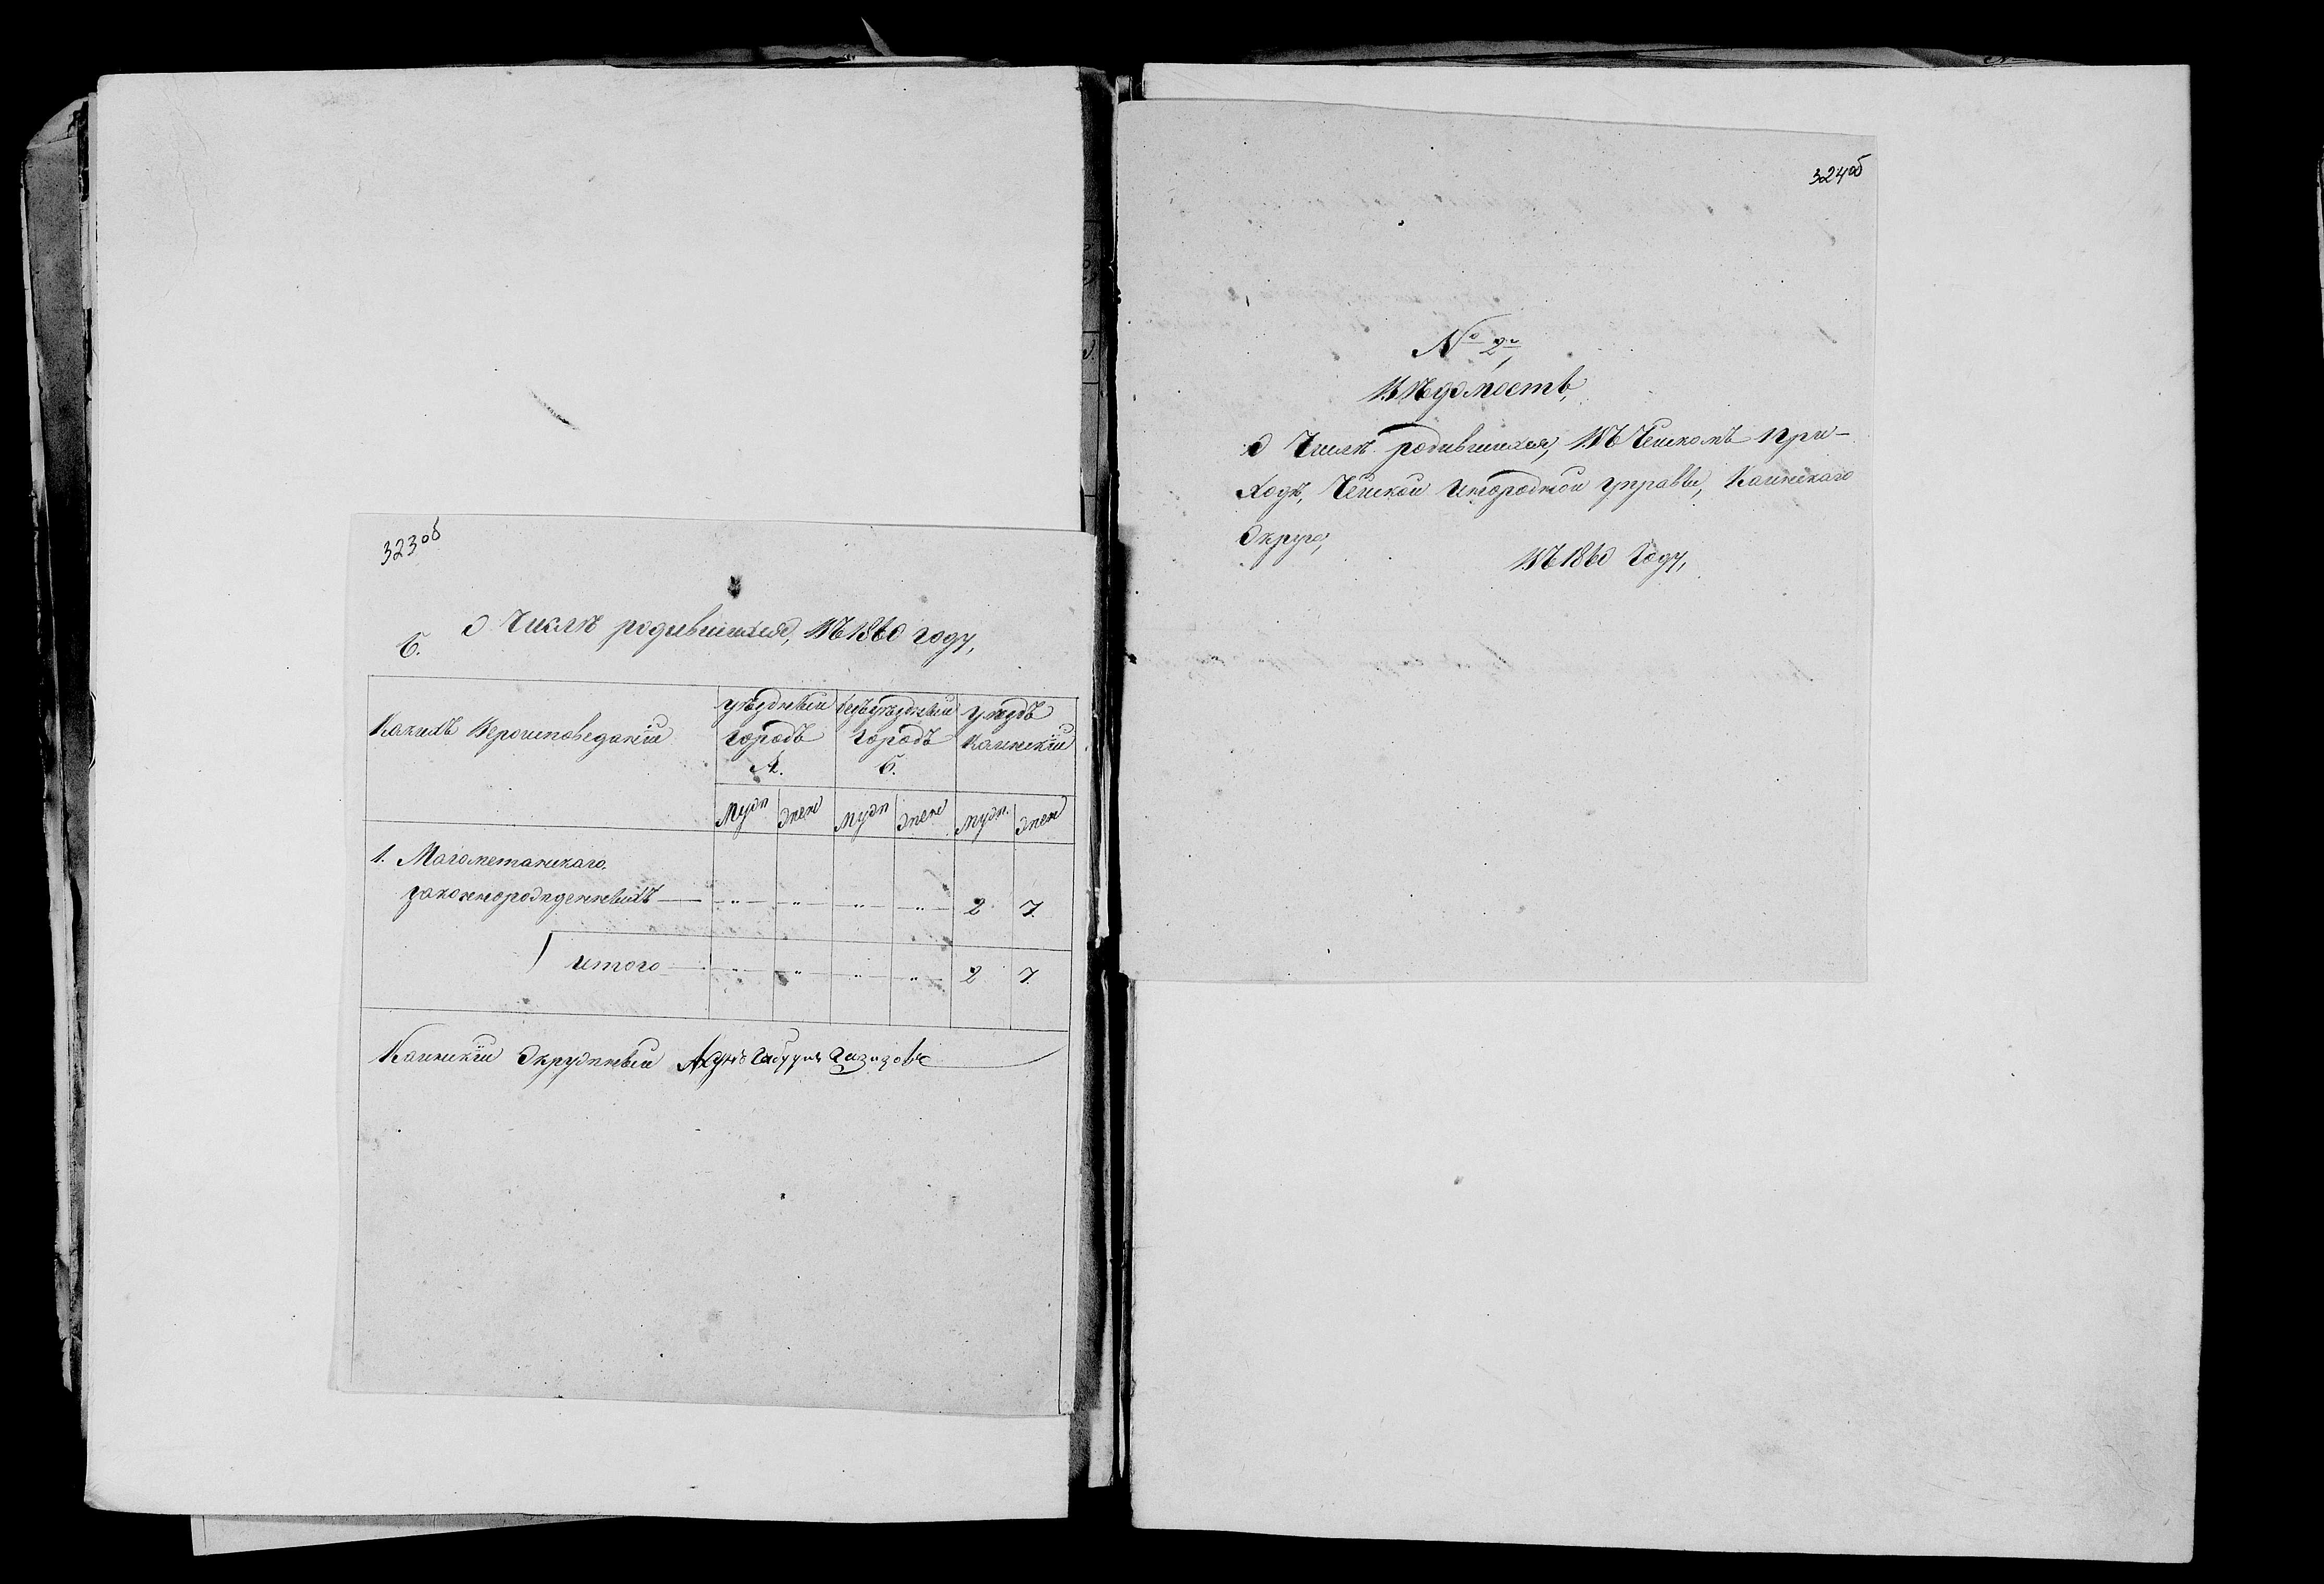 323 об
О Числѣ родившихся, Въ 1860 году,
Б.
Какихъ Вероисповеданiй
уѣздный городъ А.
безъуѣздный городъ Б.
уѣздъ Каинскiй
Муж жен Муж жен Муж. жен
1. Магометанскаго.
законнорожденныхъ — „ — „ — „ — „ — 2 7.
итого — „ — „ — „ — „ — 2 7.
Каинскiй Окружный Ахунъ
324 об
№ 2й,
Вѣдомость,
О Числѣ родившихся, Въ Чейскомъ При-
ходѣ, Чейской Инородной управы, Каинскаго
Округа,
Въ 1860 Году,